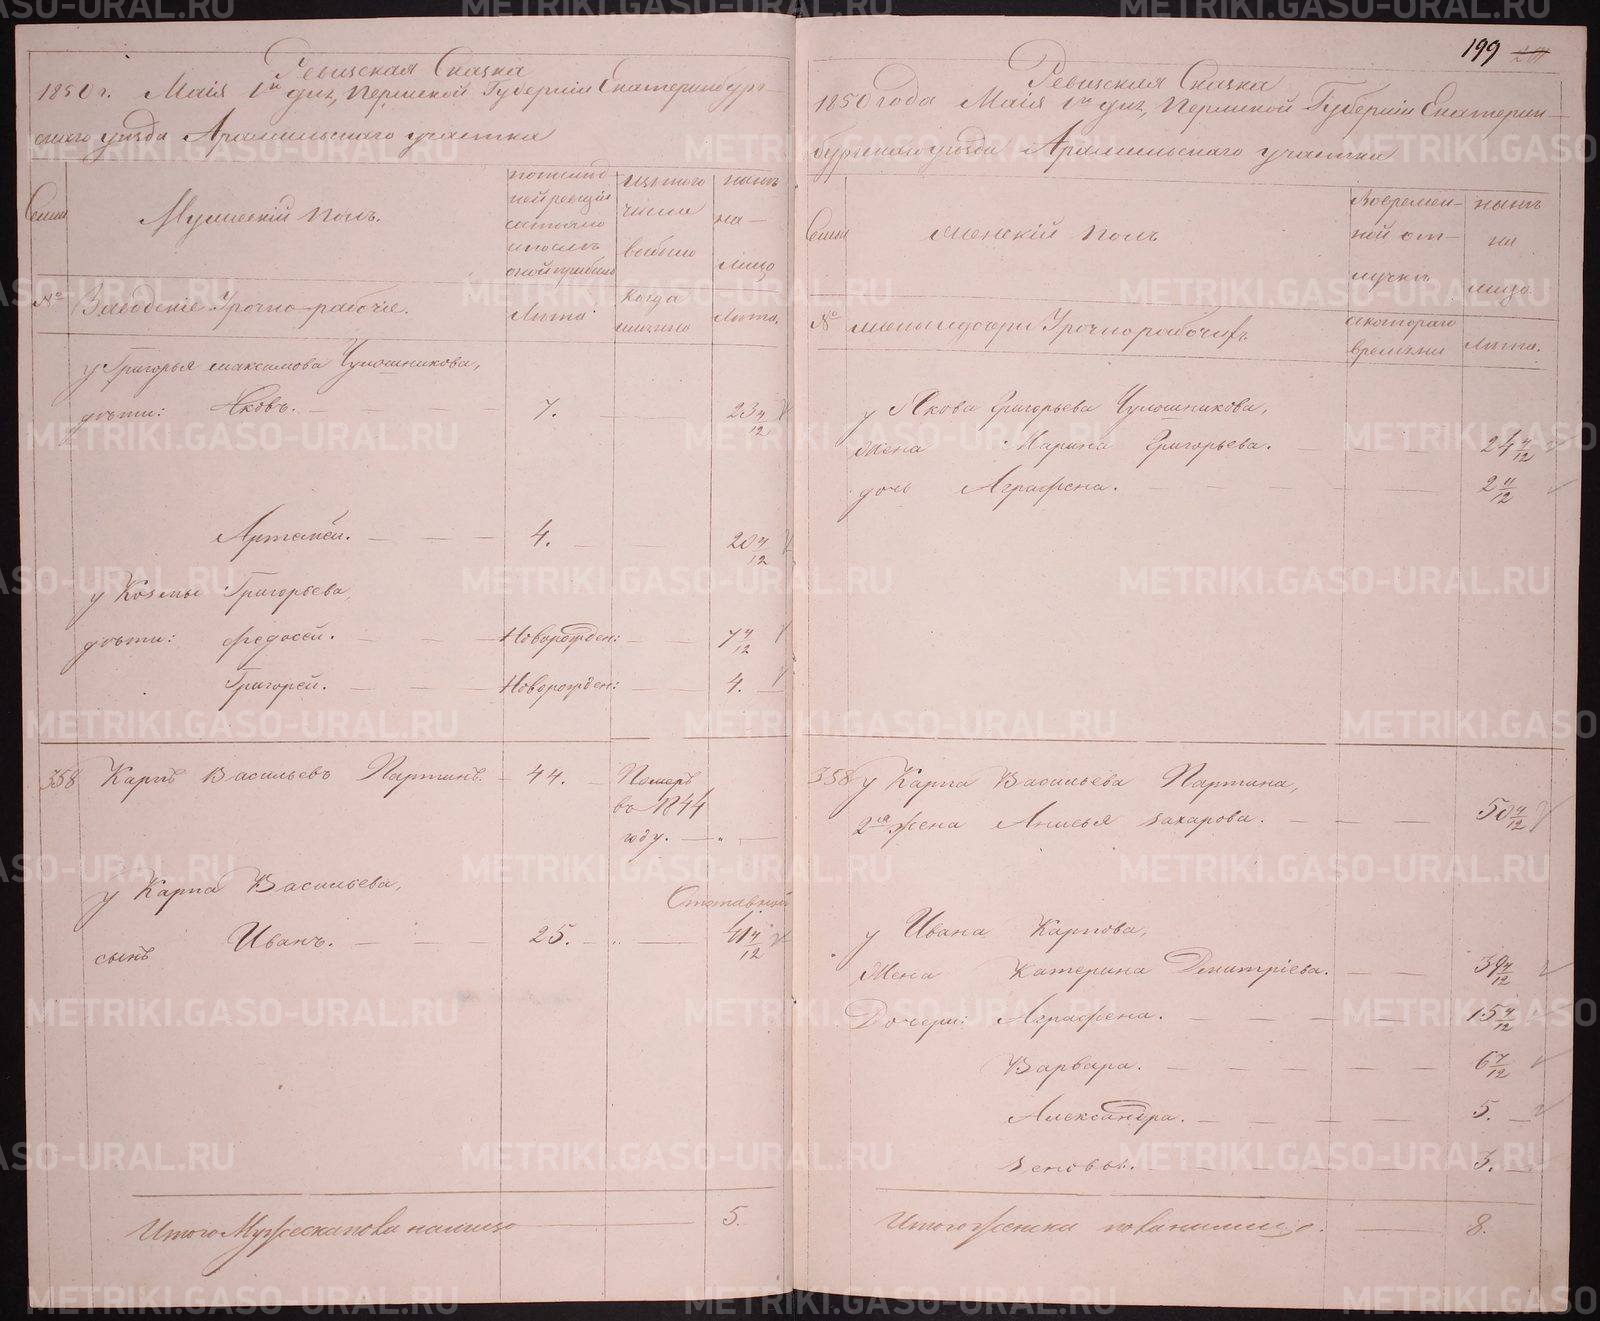 199
Ревизская Сказка
1850 г. Маія 1го дня, Пермской Губерніи Екатеринбург-
скаго уезда Арамильскаго участка
Семьи
Мужескій полъ.
по послед-
ней ревизіи
состояло
и после
оной прибыло
изъ того
числа
выбыло
ныне
на-
лицо
№
Заводскіе Урочно-рабочіе.
Лета
Когда
именно
Лета.
у Григорья Максимова Чулошникова,
дети: Яковъ. 7. 23 4/12
Артемей. 4. 20 4/12
у Козмы Григорьева,
дети: Федосей. Новорожден: 7 4/12
Григорей. Новорожден: 4.
358 Карпъ Васильевъ Партинъ. 44. Померъ
въ 1844
году.
у Карпа Васильева,
Отставной
сынъ Иванъ. 25. 41 4/12
Итого Мужеска пола на лицо 5.
Ревизская Сказка
1850 года Маія 1го дня, Пермской Губерніи Екатерин-
бургскаго уезда Арамильскаго участка
Семьи
Женскій полъ
Во времен-
ной от-
лучке
ныне
на
лицо
№
жены и дочери Урочнорабочихъ
с котораго
времени
Лета.
у Якова Григорьева Чулошникова,
Жена Марина Григорьева. 24 4/12
дочь Аграфена. 2 11/12
358 у Карпа Васильева Партина,
2я жена Анисья Захарова. 50 4/12
у Ивана Карпова,
Жена Катерина Дмитріева. 39 4/12
Дочери: Аграфена. 15 4/12
Варвара. 6 7/12
Александра. 5.
Зеновья. 3.
Итого женска пола на лицо. 8.
METRIKI.GASO-URAL.RU